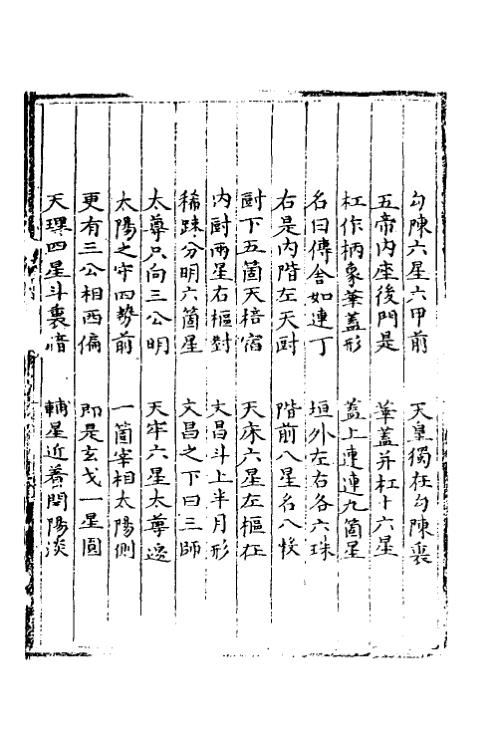 勾陳六星六甲前　天皇獨在勾陳裏
五帝内座後門是　華蓋并杠十六星
杠作柄象華蓋形　蓋上連連九箇星
名曰傳舍如連丁　垣外左右各六珠
右是内階左天厨　階前八星名八
厨下五箇天棓宿　天床六星左樞在
内厨兩星右樞對　文昌斗上半月形
稀踈分明六箇星　文昌之下曰三師
太尊只向三公明　天牢六星太尊邊
太陽之守四勢前　一箇宰相太陽側
更有三公相西偏　即是玄戈一星圓
天理四星斗裏暗　輔星近著開陽淡